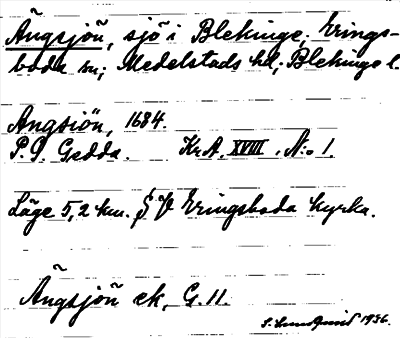 Ängsjön, sjö i Blekinge, Erings-
boda sn; Medelstads hd, Blekinge l.
Angsiön, 1684.
P. G. Gedda. KrA. XVIII. N:o 1.
Läge 5,2 km. SV Eringsboda kyrka.
Ängsjön ek, G. 11.
S. Lundqvist 1936.